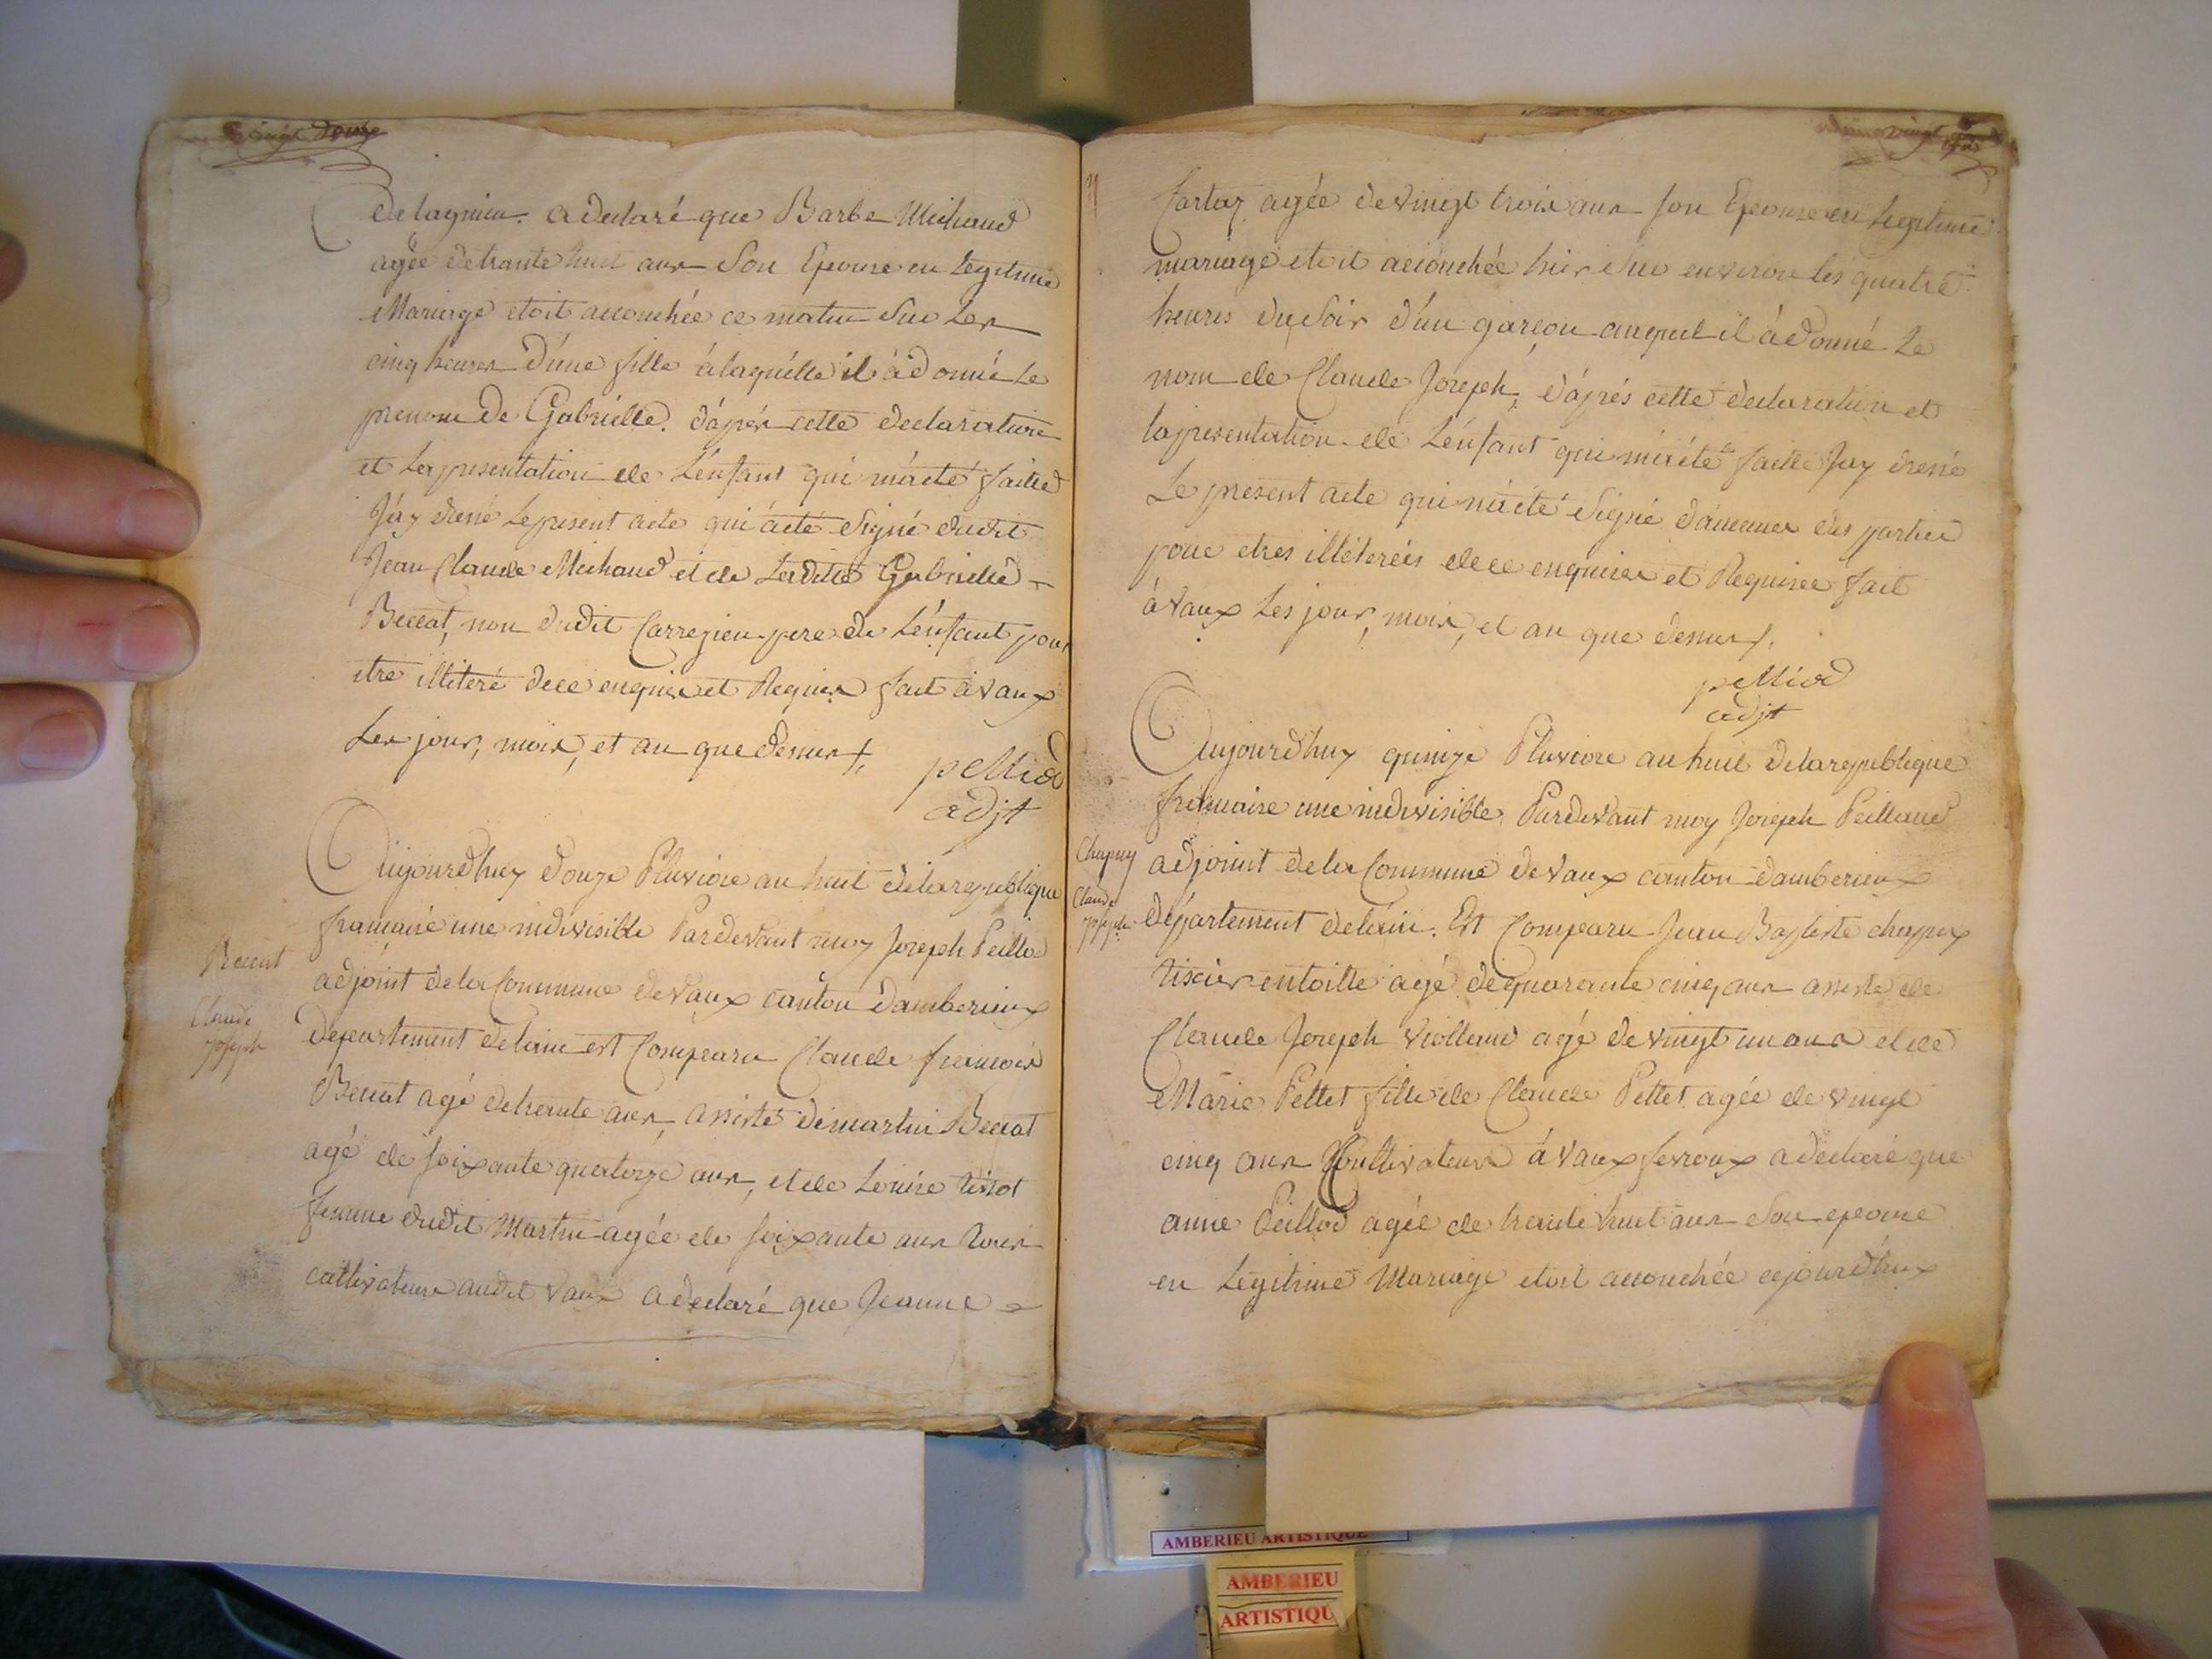 vingt douze
Delagnieu. a declaré que Barbe Michaud
agée detrante huit ans Son Epouse en Legitime
Mariage etoit accouchée ce matin Sur Les
cinq heures D'une fille à laquélle il à donné Le
prenom De Gabriélle. d'áprés cette declaration
et La presentation de L'énfant qui m'à eté faitte
J'áy dressé Le present acte qui à eté Signé dudit
Jean Claude Michaud et de Laditte Gabrielle
Beccat, non dudit Carregieu pere de L'énfant pour
etre illiteré dece enquis et Requis fait à vaux
Les jour, mois, et an que dessus
pelliod
adjt
Aujourdhuy douze Pluviose an huit delarepublique
francaise une indivisible Pardevant moy Joseph Peillod
adjoint dela Commune devaux canton damberieux
Departement delain est Comparu Claude francois
Beccat agé detrente ans, assisté demartin Beccat
agé de soixante quatorze ans, et de Louise tissot
femme dudit Martin agée de soixante ans tous
cultivateurs audit vaux a declaré que Jeanne =
Beccat
Claude
joseph
vingt
Cartaz agée devingt trois ans son Epouse en Legitime
mariage etoit accouchée hier Sur environ les quatre
heures du Soir d'ún garçon auquel il à donné Le
nom de Claude Joseph, d'áprés cette declaration et
la presentation de L'énfant qui m'à eté faitte J'ay dressé
Le present acte qui n'à eté Signé d'áucunes des parties
pour etres illétereés dece enquises et Requises fait
à Vaux Les jour, mois, et an que dessus
pelliod
adjt
Aujourdhuy quinze Pluviose an huit delarepublique
francaise une indivisible, Pardevant moy Joseph Peillaud
adjoint dela Commune devaux canton damberieux
département delain. Est Comparu Jean Baptiste chapuy
tissier entoille agé dequarante cinq ans assisté de
Claude Joseph Violland agé de vingt un ans et de
Marie Pettet fille de Claude Pettet agée de vingt
cinq ans Cultivateurs à vaux fevroux a declaré que
anne Peillod agée de trente huit ans Son epouse
en Legitime Mariage etoit accouchée cejourdhuy
Chapuy
Claude
joseph
AMBERIEU ARTISTIQUE
AMBERIEU
ARTISTIQU